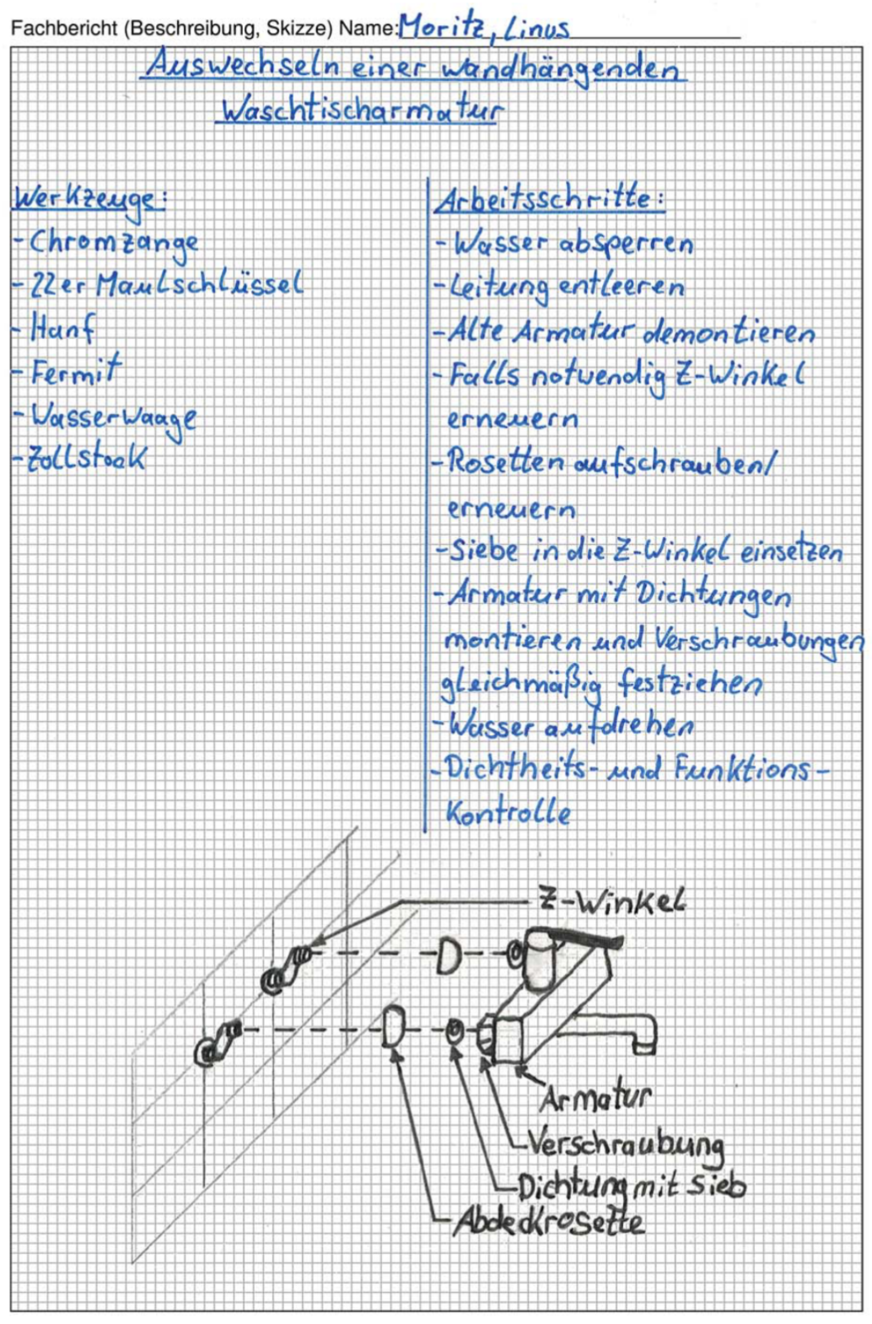 Fachbericht (Beschreibung, Skizze) Name: Moritz, Linus
Auswechseln einer wandhängenden
Waschtischarmatur
Werkzeuge:
- Chromzange
- 22er Maulschlüssel
- Hanf
- Fermit
- Wasserwaage
- Zollstock
Arbeitsschritte:
- Wasser absperren
- Leitung entleeren
- Alte Armatur demontieren
- Falls notwendig Z-Winkel
erneuern
- Rosetten aufschrauben/
erneuern
- Siebe in die Z-Winkel einsetzen
- Armatur mit Dichtungen
montieren und Verschraubungen
gleichmäßig festziehen
- Wasser aufdrehen
- Dichtheits- und Funktions-
Kontrolle
Z-Winkel
Armatur
Verschraubung
Dichtung mit Sieb
Abdeckrosette